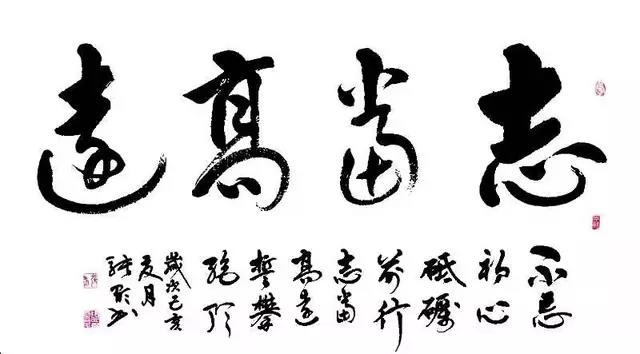 志當高遠
不忘
初心
砥礪
前行
志當
高遠
誓攀
絕頂
歲次己亥
夏月